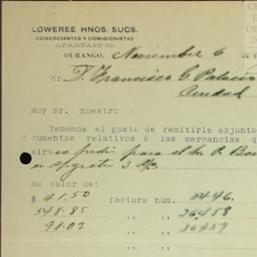 LOWEREE HNOS. SUCS.
COMERCIANTES Y COMISIONISTAS
APARTADO
DURANGO, Noviembre 6
Sr. Francisco G. Palacio
Ciudad
Muy Sr. nuestro :
Tenemos el gusto de remitirle adjunto
cumentos relativos á las mercancías q
para el Sr.
su valor de:
$ 41.50 factura núm. 3446.
548.85 " " 36458
91.02 " " 36459